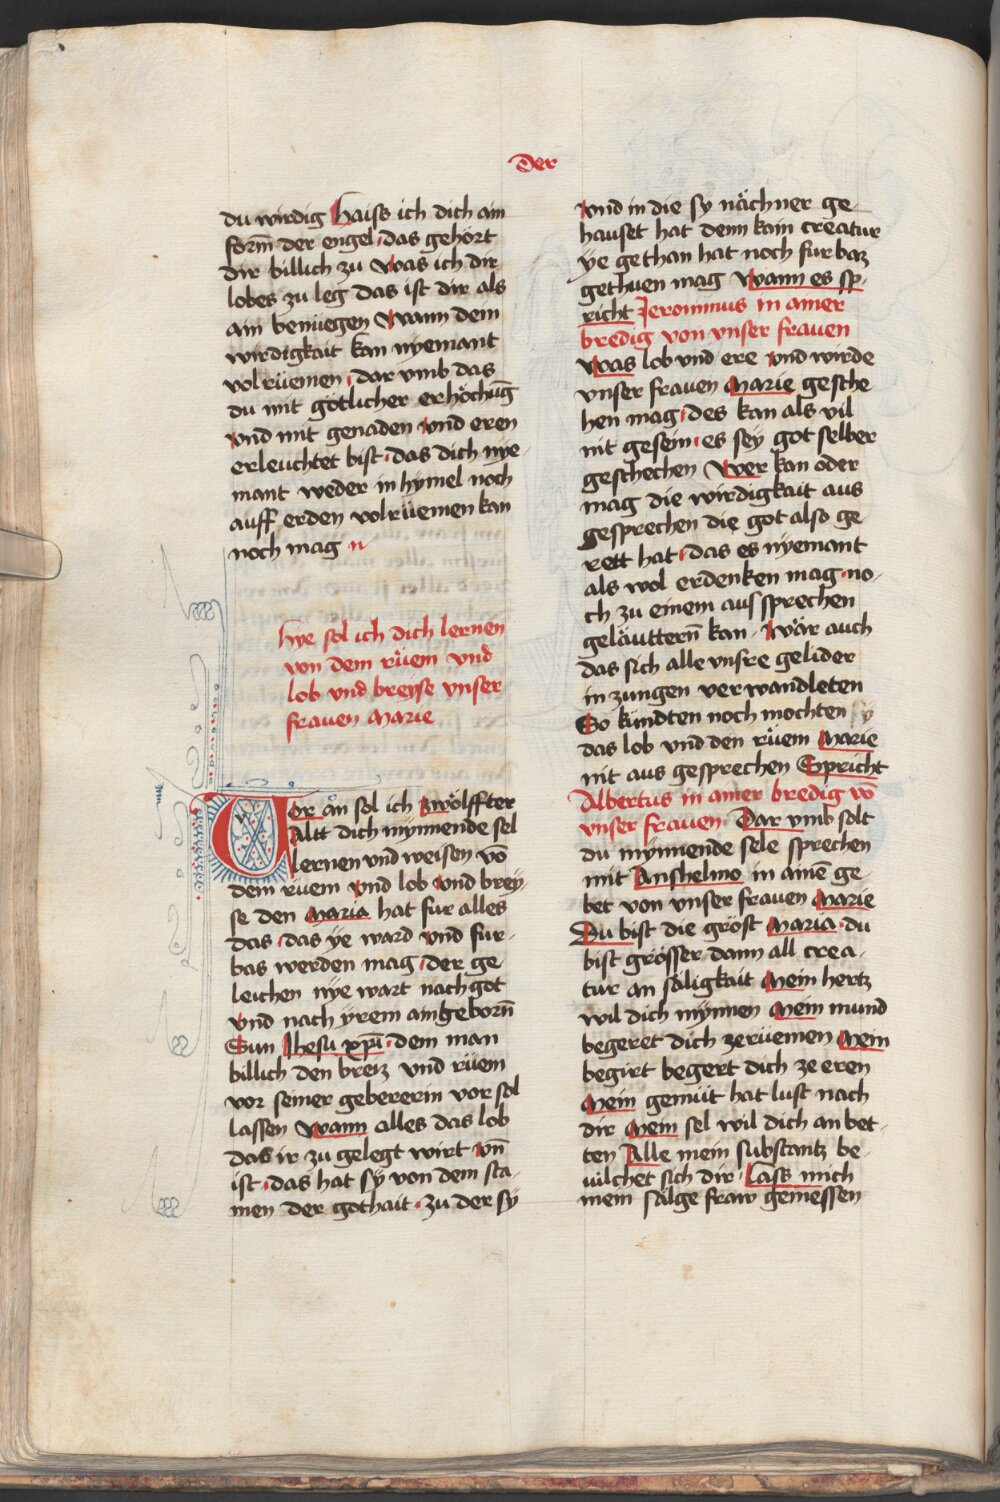 Der
du wirdig Haiss ich dich ain
form̄ der engel das gehört
dir billich zu Was ich dir
lobes zu leg das ist dir als
ain benüegen Wann dein
wirdigkait kan nyemant
volrüemen dar vmb das
du mit götlicher erhöchūg
vnd mit genaden vnd eren
erleuchtet bist das dich nye
mant weder in hymel noch
auff erden volrüemen kan
noch mag
Hye sol ich dich lernen
von dem rüem vnd
lob vnd breyse vnser
frauen Marie
Vor an sol ich zwölffter
Altt dich mynnende sel
lernen vnd weisen vō
dem rüem vnd lob vnd brey
se den Maria hat fur alles
das das ye ward vnd fur
bas werden mag der ge
leichen nye wart nach got
vnd nach yrem aingeborn̄
Sun Jhesu xpī dem man
billich den breiz vnd rüem
vor seiner gebererin vor sol
lassen Wann alles das lob
das ir zu gelegt wirt vn̄
ist das hat sy von dem sta
men der gothait zu der sy
vnd in die sy nächner ge
hauset hat denn kain creatur
ye gethan hat noch fur baz
gethuen mag Wann es sp
richt Jeronimus in ainer
bredig von vnser frauen
Was lob vnd ere vnd wirde
vnser frauen Marie gesche
hen mag des kan als vil
nit gesein es sey got selber
geschechen Wer kan oder
mag die wirdigkait aus
gesprechen die got also ge
rett hat das es nyemant
als wol erdenken mag no
ch zu einem aussprechen
geläuttern̄ kan Wär auch
das sich alle vnsre gelider
in zungen verwandleten
So kündten noch mochten sy
das lob vnd den rüem Marie
nit aus gesprechen Spricht
Albertus in ainer bredig vō
vnser frauen Dar vmb solt
du mynnende sele sprechen
mit Anshelmo in ainē ge
bet von vnser frauen Marie
Du bist die gröst Maria du
bist grösser dann all crea
tur an säligkait Mein hertz
wil dich mynnen Mein mund
begeret dich zerüemen Mein
begirt begert dich ze eren
Mein gemüt hat lust nach
dir Mein sel wil dich an bet
ten Alle mein substantz be
uilchet sich dir Lass mich
mein sälge fraw geniessen